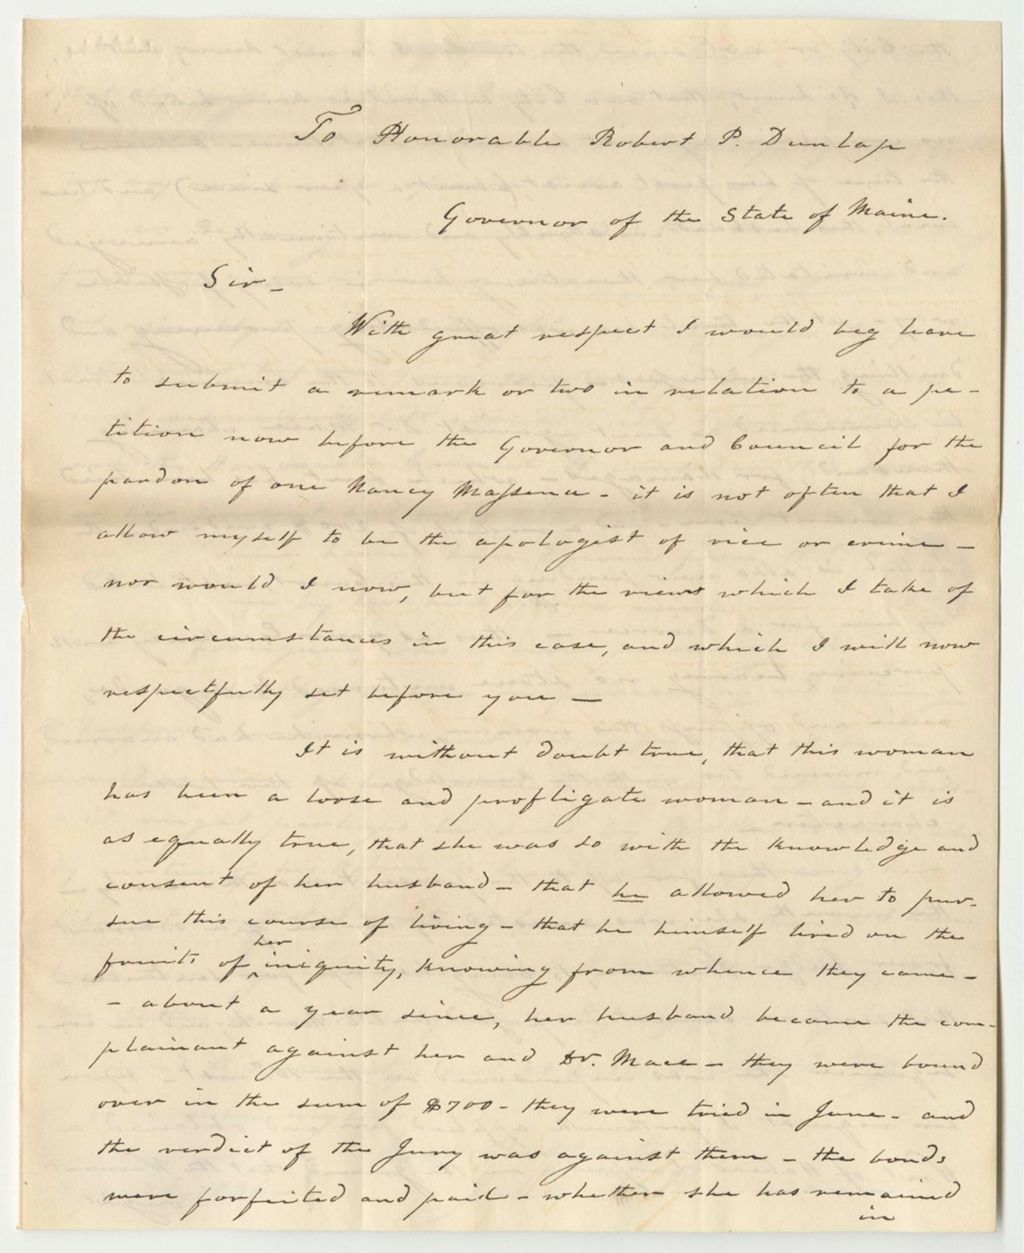 To Honorable Robert P. Dunlap
Governor of the State of Maine.
Sir -
With great respect I would beg leave
to submit a remark or two in relation to a pe-
tition now before the Governor and Council for the
pardon of one Nancy Massena - it is not often that I
allow myself to be the apologist of vice or crime -
nor would I now, but for the views which I take of
the circumstances in this case, and which I will now
respectfully set before you -
It is without doubt true, that this woman
has been a loose and profligate woman - and it is
as equally true, that she was so with the knowledge and
consent of her husband - that he allowed her to pur-
sue this course of living - that he himself lived on the
fruits of her iniquity, knowing from whence they came -
- about a year since, her husband became the com-
plainant against her and Dr. Mace - they were bound
over in the sum of $700 - they were tried in June - and
the verdict of the Jury was against them - the bonds
were forfeited and paid - whether she has remained
in